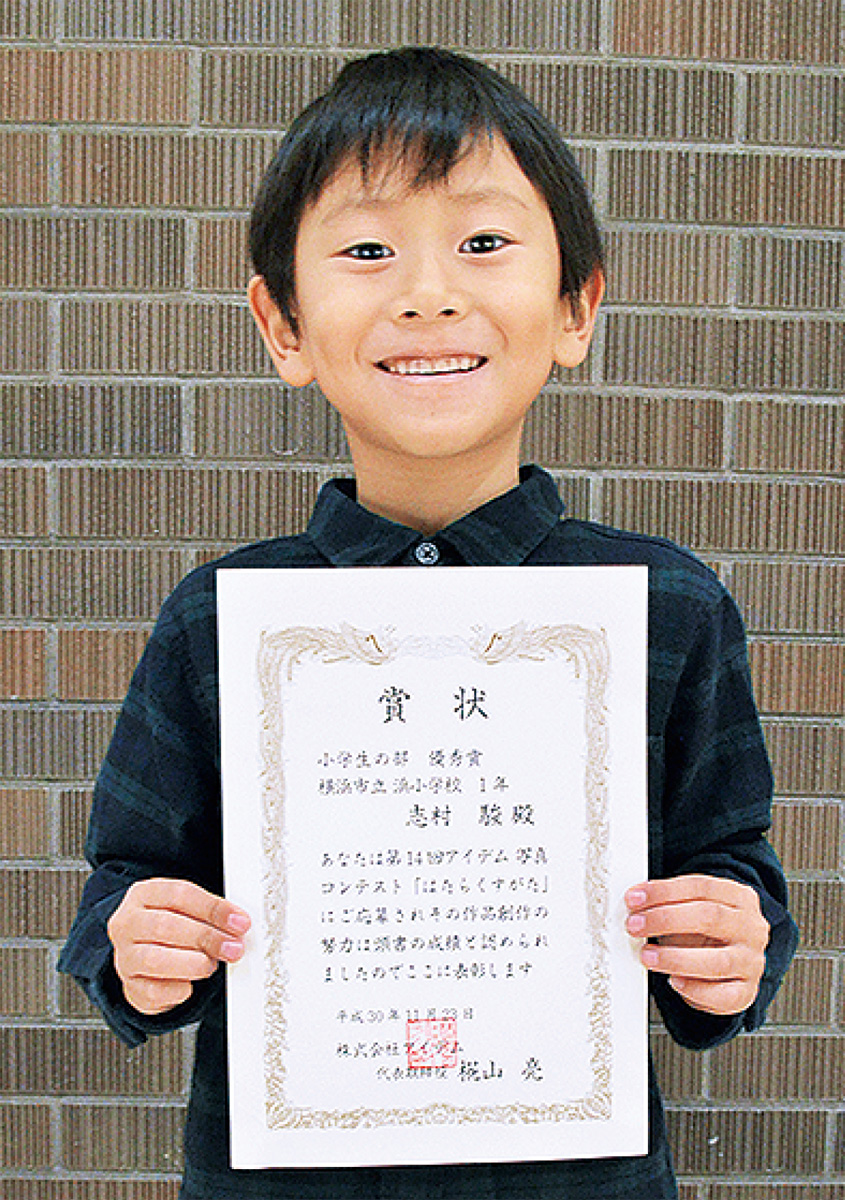 賞 状
小学生の部 優秀賞
横浜市立 浜小学校 1年
志村 駿 殿
あなたは第14回アイデム 写真
コンテスト「はたらくすがた」
にご応募されその作品創作の
努力は頭書の成績と認められ
ましたのでここに表彰します
平成30年11月23日
株式会社アイデム
代表取締役 椛山 亮